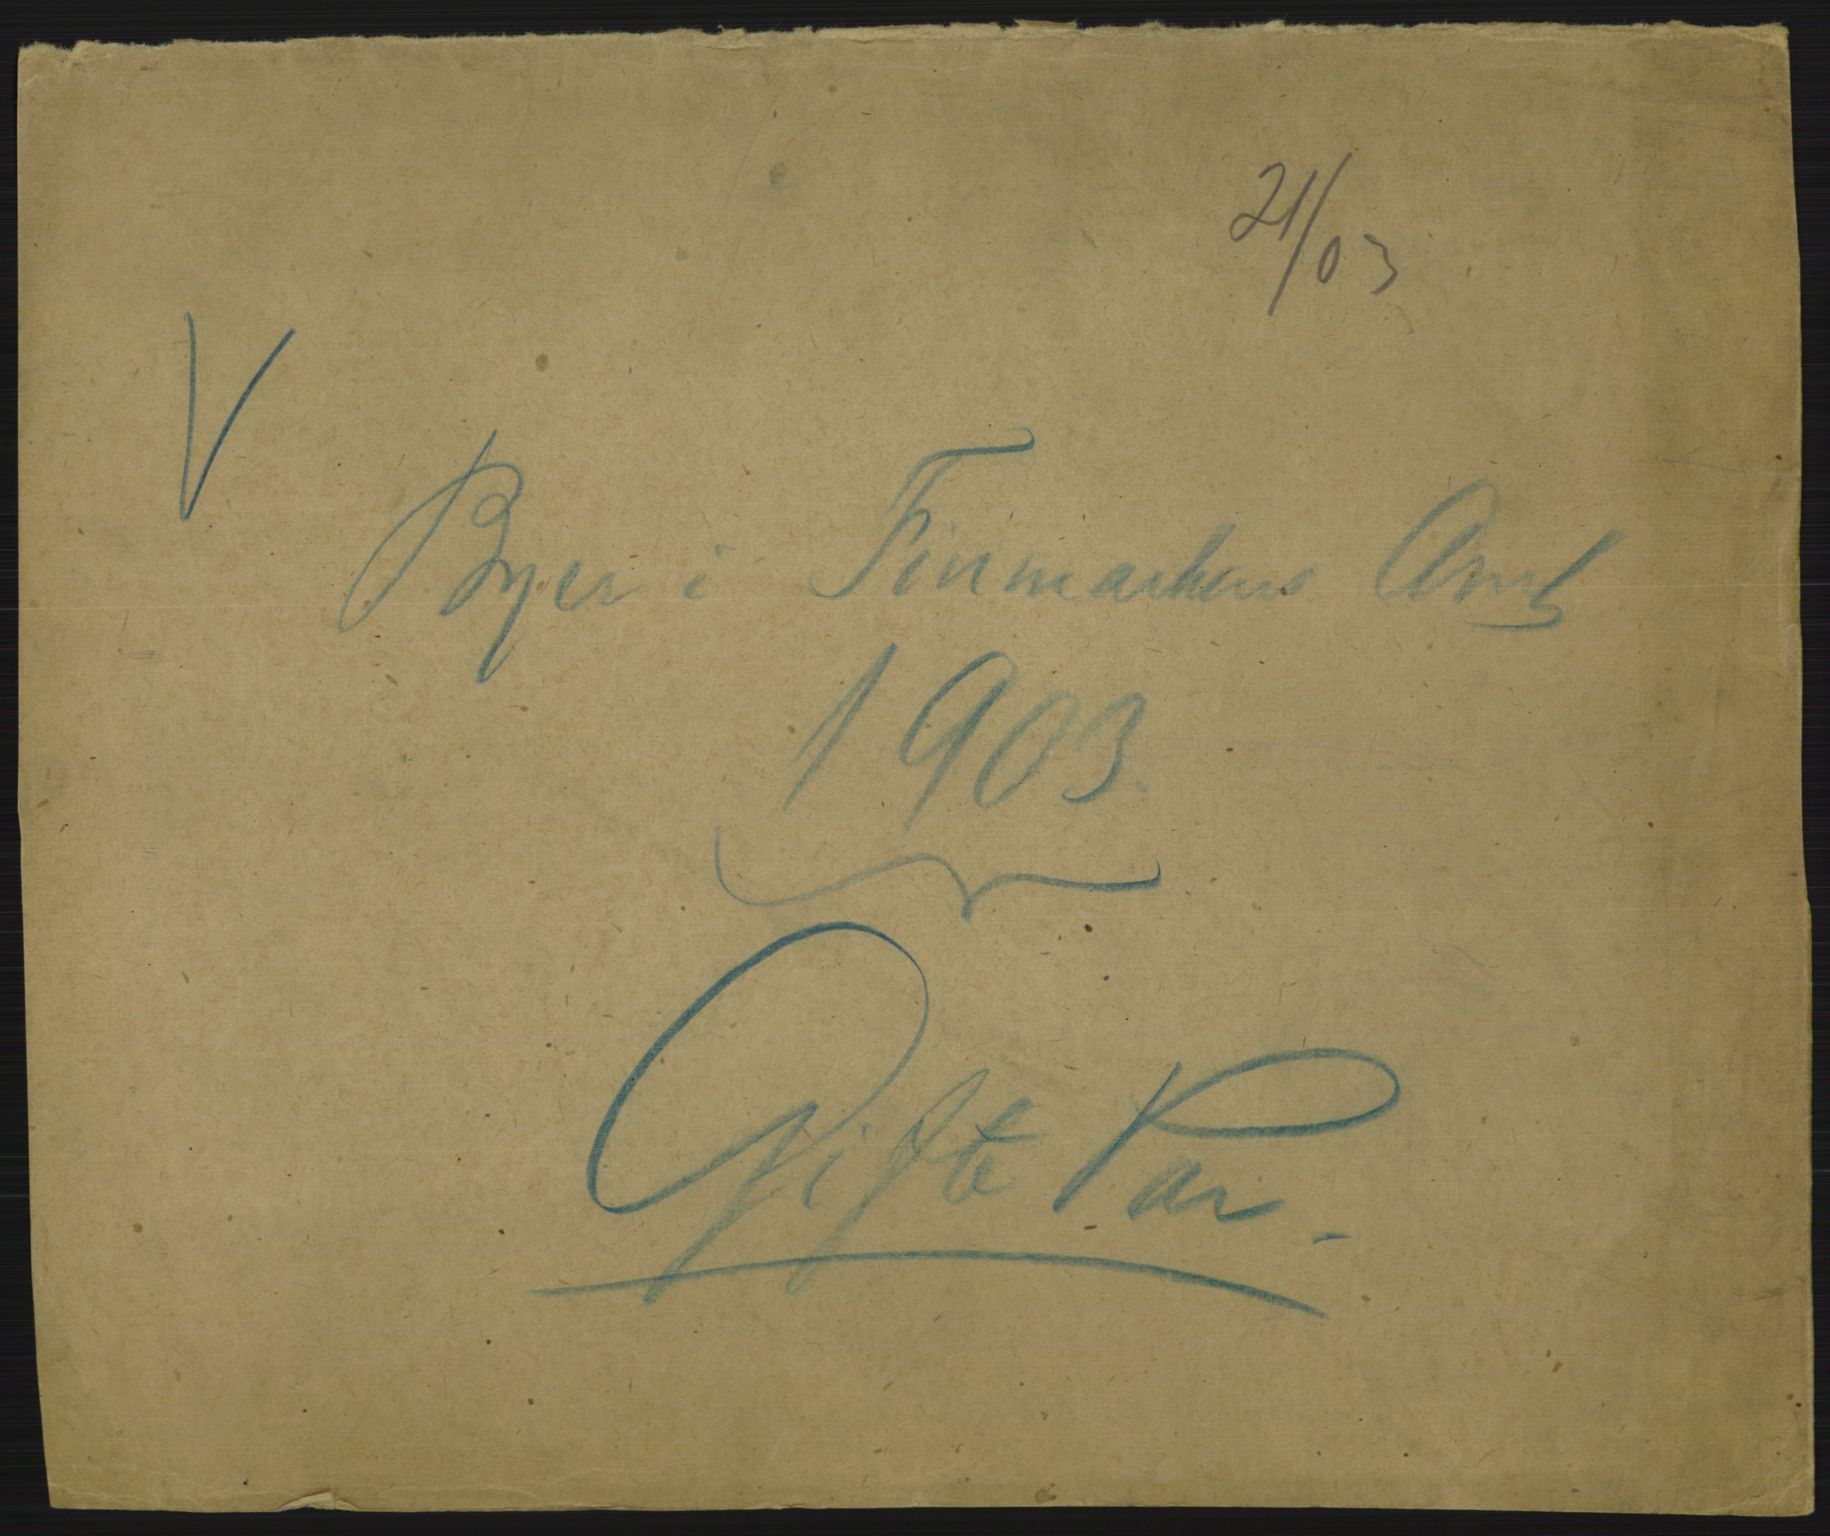 21/03
V
Byer i Finmarkens Amt
1903.
Gifte Par.